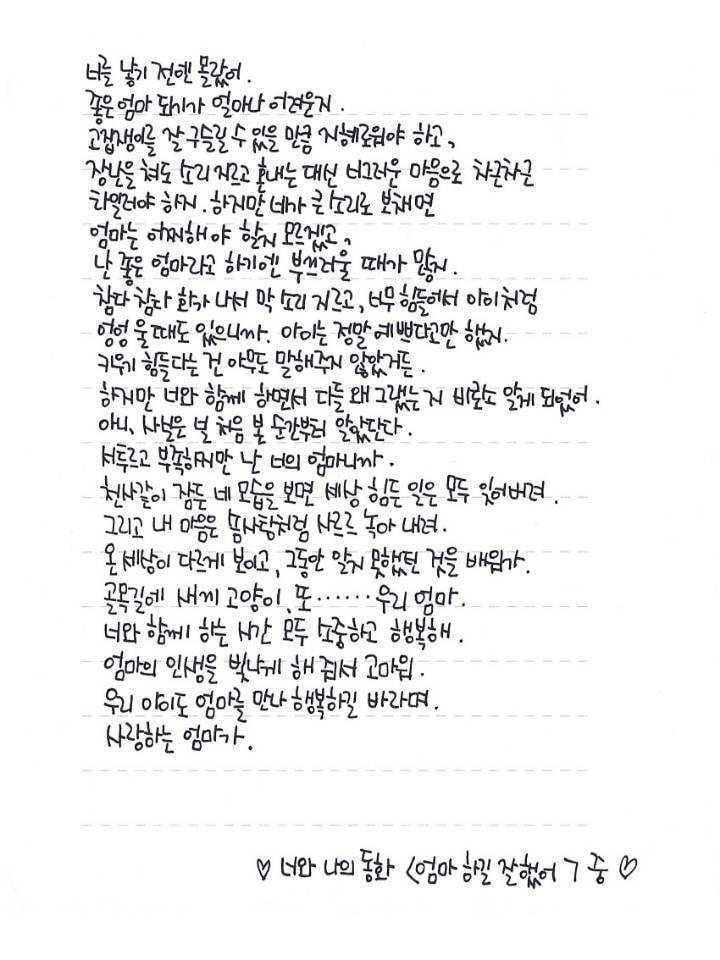 너를 낳기 전엔 몰랐어.
좋은 엄마 되기가 얼마나 어려운지.
고집쟁이를 잘 구슬릴 수 있을 만큼 지혜로워야 하고,
장난을 쳐도 소리 지르고 혼내는 대신 너그러운 마음으로 차근차근
타일러야 하지. 하지만 네가 큰 소리로 보채면
엄마는 어찌해야 할지 모르겠고,
난 좋은 엄마라고 하기엔 부끄러울 때가 많지.
참다 참다 화가 나서 막 소리 지르고, 너무 힘들어서 아이처럼
엉엉 울 때도 있으니까. 아이는 정말 예쁘다고만 했지.
키우기 힘들다는 건 아무도 말해주지 않았거든.
하지만 너와 함께 하면서 다들 왜 그랬는지 비로소 알게 되었어.
아니, 사실은 널 처음 볼 순간부터 알았단다.
서투르고 부족하지만 난 너의 엄마니까.
천사같이 잠든 네 모습을 보면 세상 힘든 일은 모두 잊어버려.
그리고 내 마음은 솜사탕처럼 사르르 녹아 내려.
온 세상이 다르게 보이고, 그동안 알지 못했던 것을 배워가.
골목길에 새끼 고양이, 또······우리 엄마.
너와 함께 하는 시간 모두 소중하고 행복해.
엄마의 인생을 빛나게 해 줘서 고마워.
우리 아이도 엄마를 만나 행복하길 바라며.
사랑하는 엄마가.
♡ 너와 나의 동화 <엄마 하길 잘했어> 중 ♡